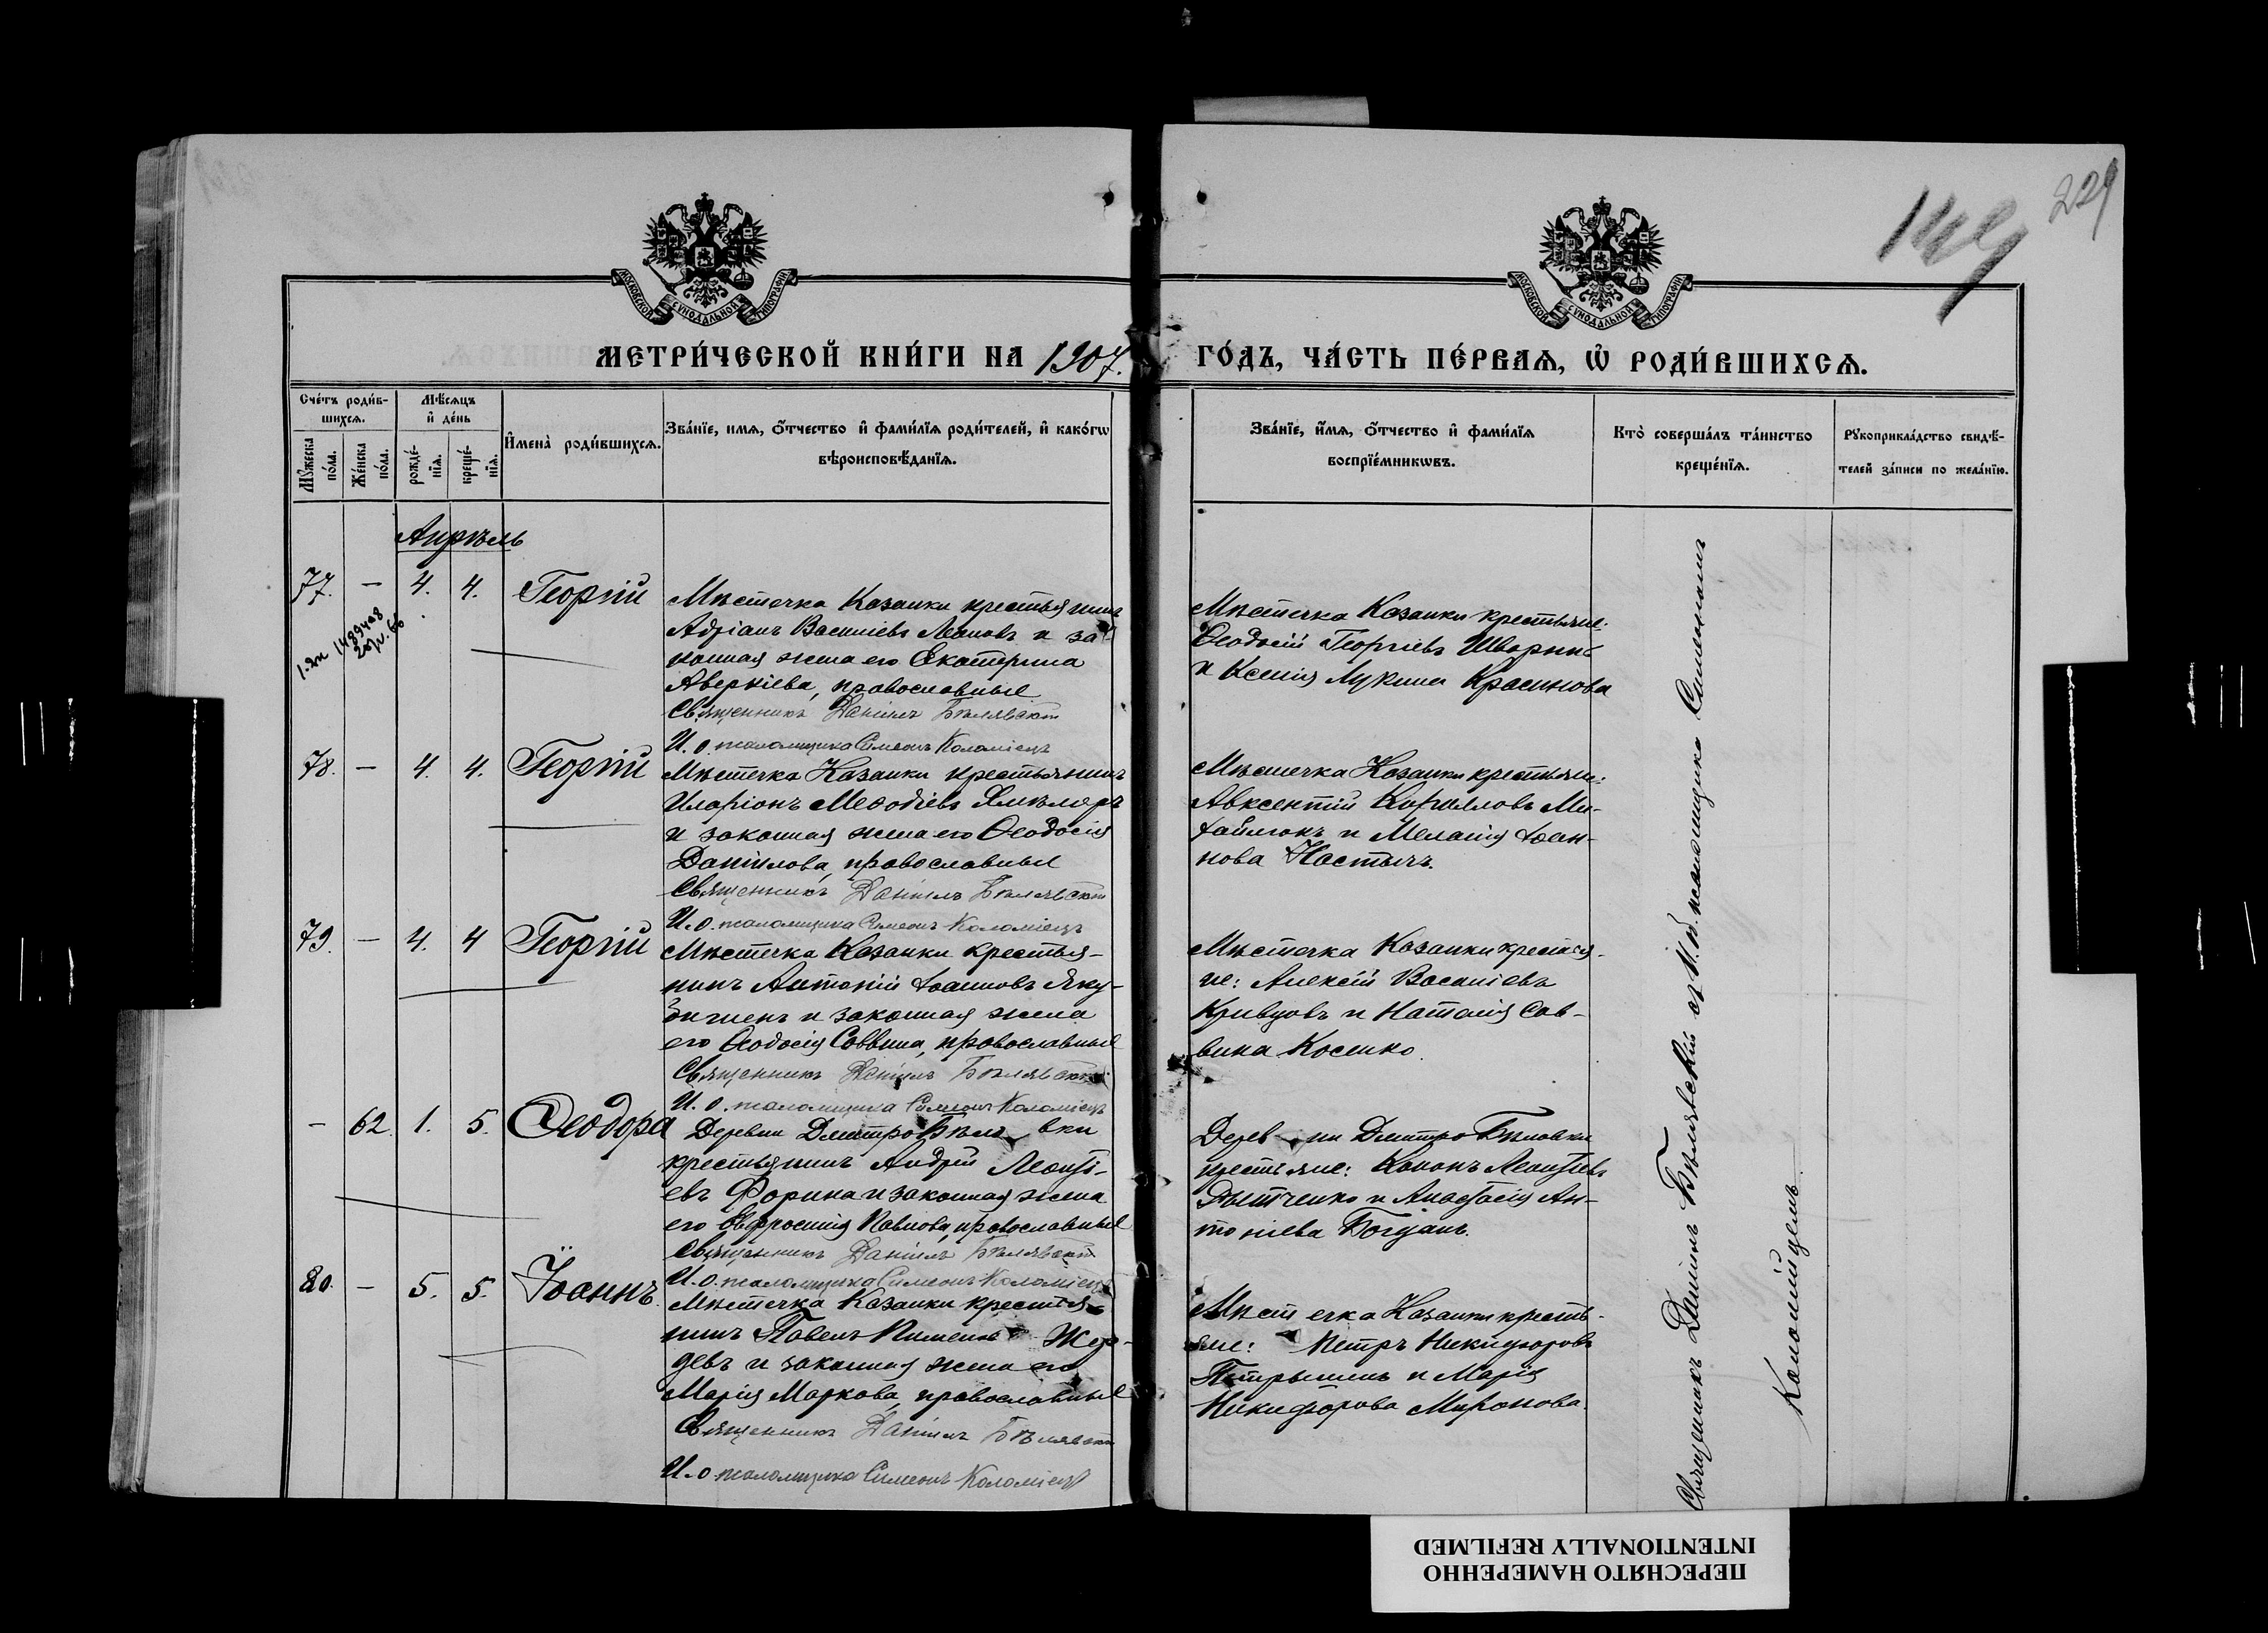 229
149
МОСКОВСКОЙ СѴНОДАЛЬНОЙ ТИПОГРАФІИ
МОСКОВСКОЙ СѴНОДАЛЬНОЙ ТИПОГРАФІИ
МЕТРИ́ЧЕСКОЙ КНИ́ГИ НА 1907.
ГО́ДЪ, ЧА́СТЬ ПЕ́РВАѦ, Ѡ҆ РОДИ́ВШИХСѦ.
Сче́тъ роди́в-
шихсѧ.
Мꙋ́жеска
по́ла.
Же́нска
по́ла.
Мѣ́сѧцъ
и҆ де́нь
рожде́-
нїѧ.
креще́-
нїѧ.
И҆мена̀ роди́вшихсѧ.
Зва́нїе, имѧ, ѻ҆́тчество и҆ фами́лїѧ роди́телей, и҆ како́гѡ
вѣроисповѣ́данїѧ.
Зва́нїе, и҆́мѧ, ѻ҆́тчество и҆ фами́лїѧ
воспрїе́мникѡвъ.
Кто̀ соверша́лъ та́инство
креще́нїѧ.
Рꙋкоприкла́дство свидѣ́-
телей за́писи по жела́нїю.
Апрѣль
77. — 4. 4. Георгій
Мѣстечка Казанки крестьянинъ
Адріанъ Василіевъ Леоновъ и за-
конная жена его Екатерина
Аверкіева, православные
Священникъ Даніилъ Бѣлявскій
И. о. псаломщика Симеонъ Коломіецъ
Мѣстечка Казанки крестьяне:
Ѳеодосій Георгіевъ
и Ксенія Лукина
78. — 4. 4. Георгій
Мѣстечка Казанки крестьянинъ
Иларіонъ Меѳодіевъ
и законная жена его Ѳеодосія
Даніилова, православные
Священникъ Даніилъ Бѣлявскій
И. о. псаломщика Симеонъ Коломіецъ
Мѣстечка Казанки крестьяне:
Авксентій Кирилловъ Ми-
и Меланія Іоан-
нова
79. — 4. 4 Георгій
Мѣстечка Казанки крестья-
нинъ Антоній Іоанновъ Яку-
и законная жена
его Ѳеодосія Саввина, православные
Священникъ Даніилъ Бѣлявскій
И. о. псаломщика Симеонъ Коломіецъ
Мѣстечка Казанки крестья-
не: Алексій Василіевъ
Кривцовъ и Наталія Сав-
вина Косенко.
— 62. 1. 5. Ѳеодора
Деревни ДмитроБѣловки
крестьянинъ Андрей Леонті-
евъ Форина и законная жена
его Евфросинія Павлова, православные
Священникъ Даніилъ Бѣлявскій
И. о. псаломщика Симеонъ Коломіецъ
Деревни ДмитроБѣловки
крестьяне: Кононъ Леонтіевъ
и Анастасія Ан-
тоніева Богданъ.
80. — 5. 5. Іоаннъ.
Мѣстечка Казанки крестья-
нинъ Павелъ Пименовъ
и законная жена его
Марія Маркова, православные
Священникъ Даніилъ Бѣлявскій
И. о. псаломщика Симеонъ Коломіецъ
Мѣстечка Казанки кресть-
яне: Петръ Никифоровъ
и Марія
Никифорова Миронова.
Священникъ Даніилъ Бѣлявскій съ И. об. псаломщика Симеономъ
Коломійцемъ.
ПЕРЕСНЯТО НАМЕРЕННО
INTENTIONALLY REFILMED